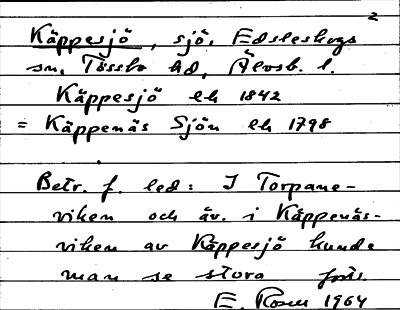 2
Käppesjö, sjö, Edsleskogs
sn, Tössbo hd, Älvsb. l.
Käppesjö ek 1842
= Käppenäs Sjön ek 1798
Betr. f. led: I Torpane-
viken och äv. i Käppenäs-
viken av Käppesjö kunde
man se stora
E. Rosén 1964